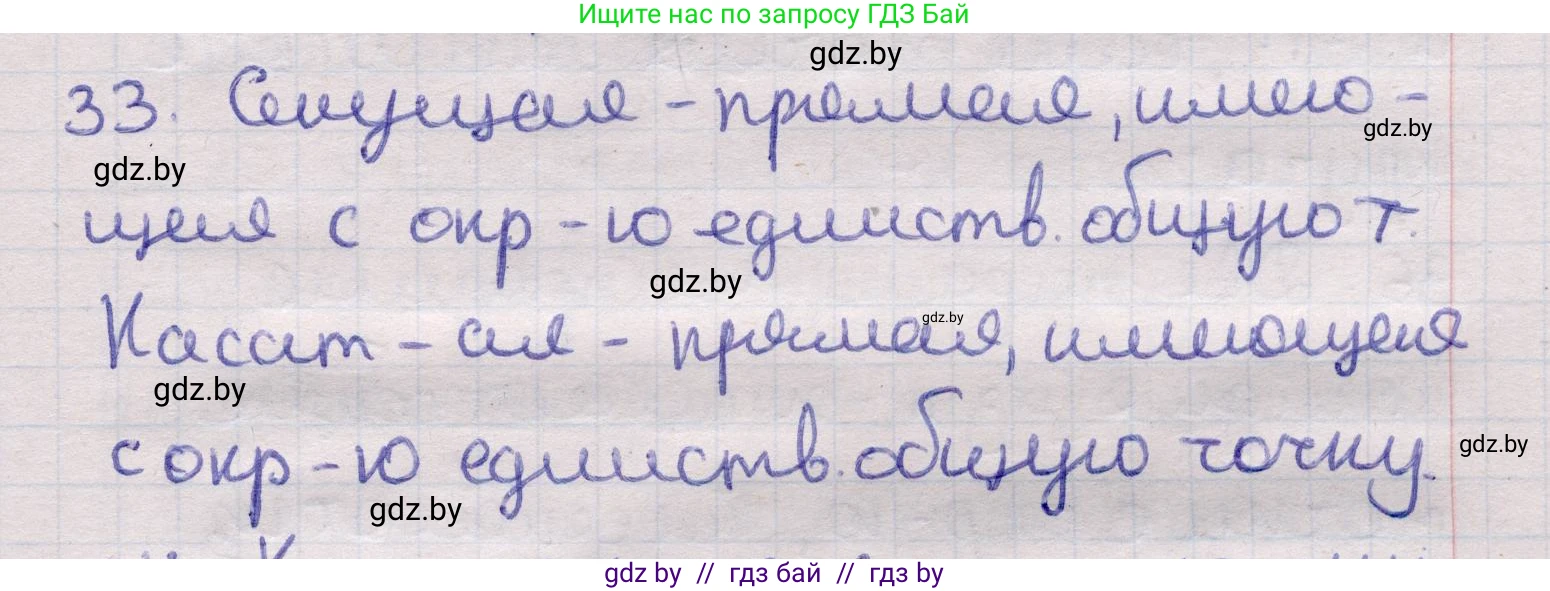 Ищите нас по запросу ГДЗ Бай
gdz.by
33. Секущая - прямая, имею-
gdz.by
gdz.by
щая с окр-ю единств. общую т.
gdz.by
Касат-ая - прямая, имеющая
gdz.by
gdz.by
с окр-ю единств. общую точку.
gdz.by
gdz.by
gdz by // гдз бай // гдз by